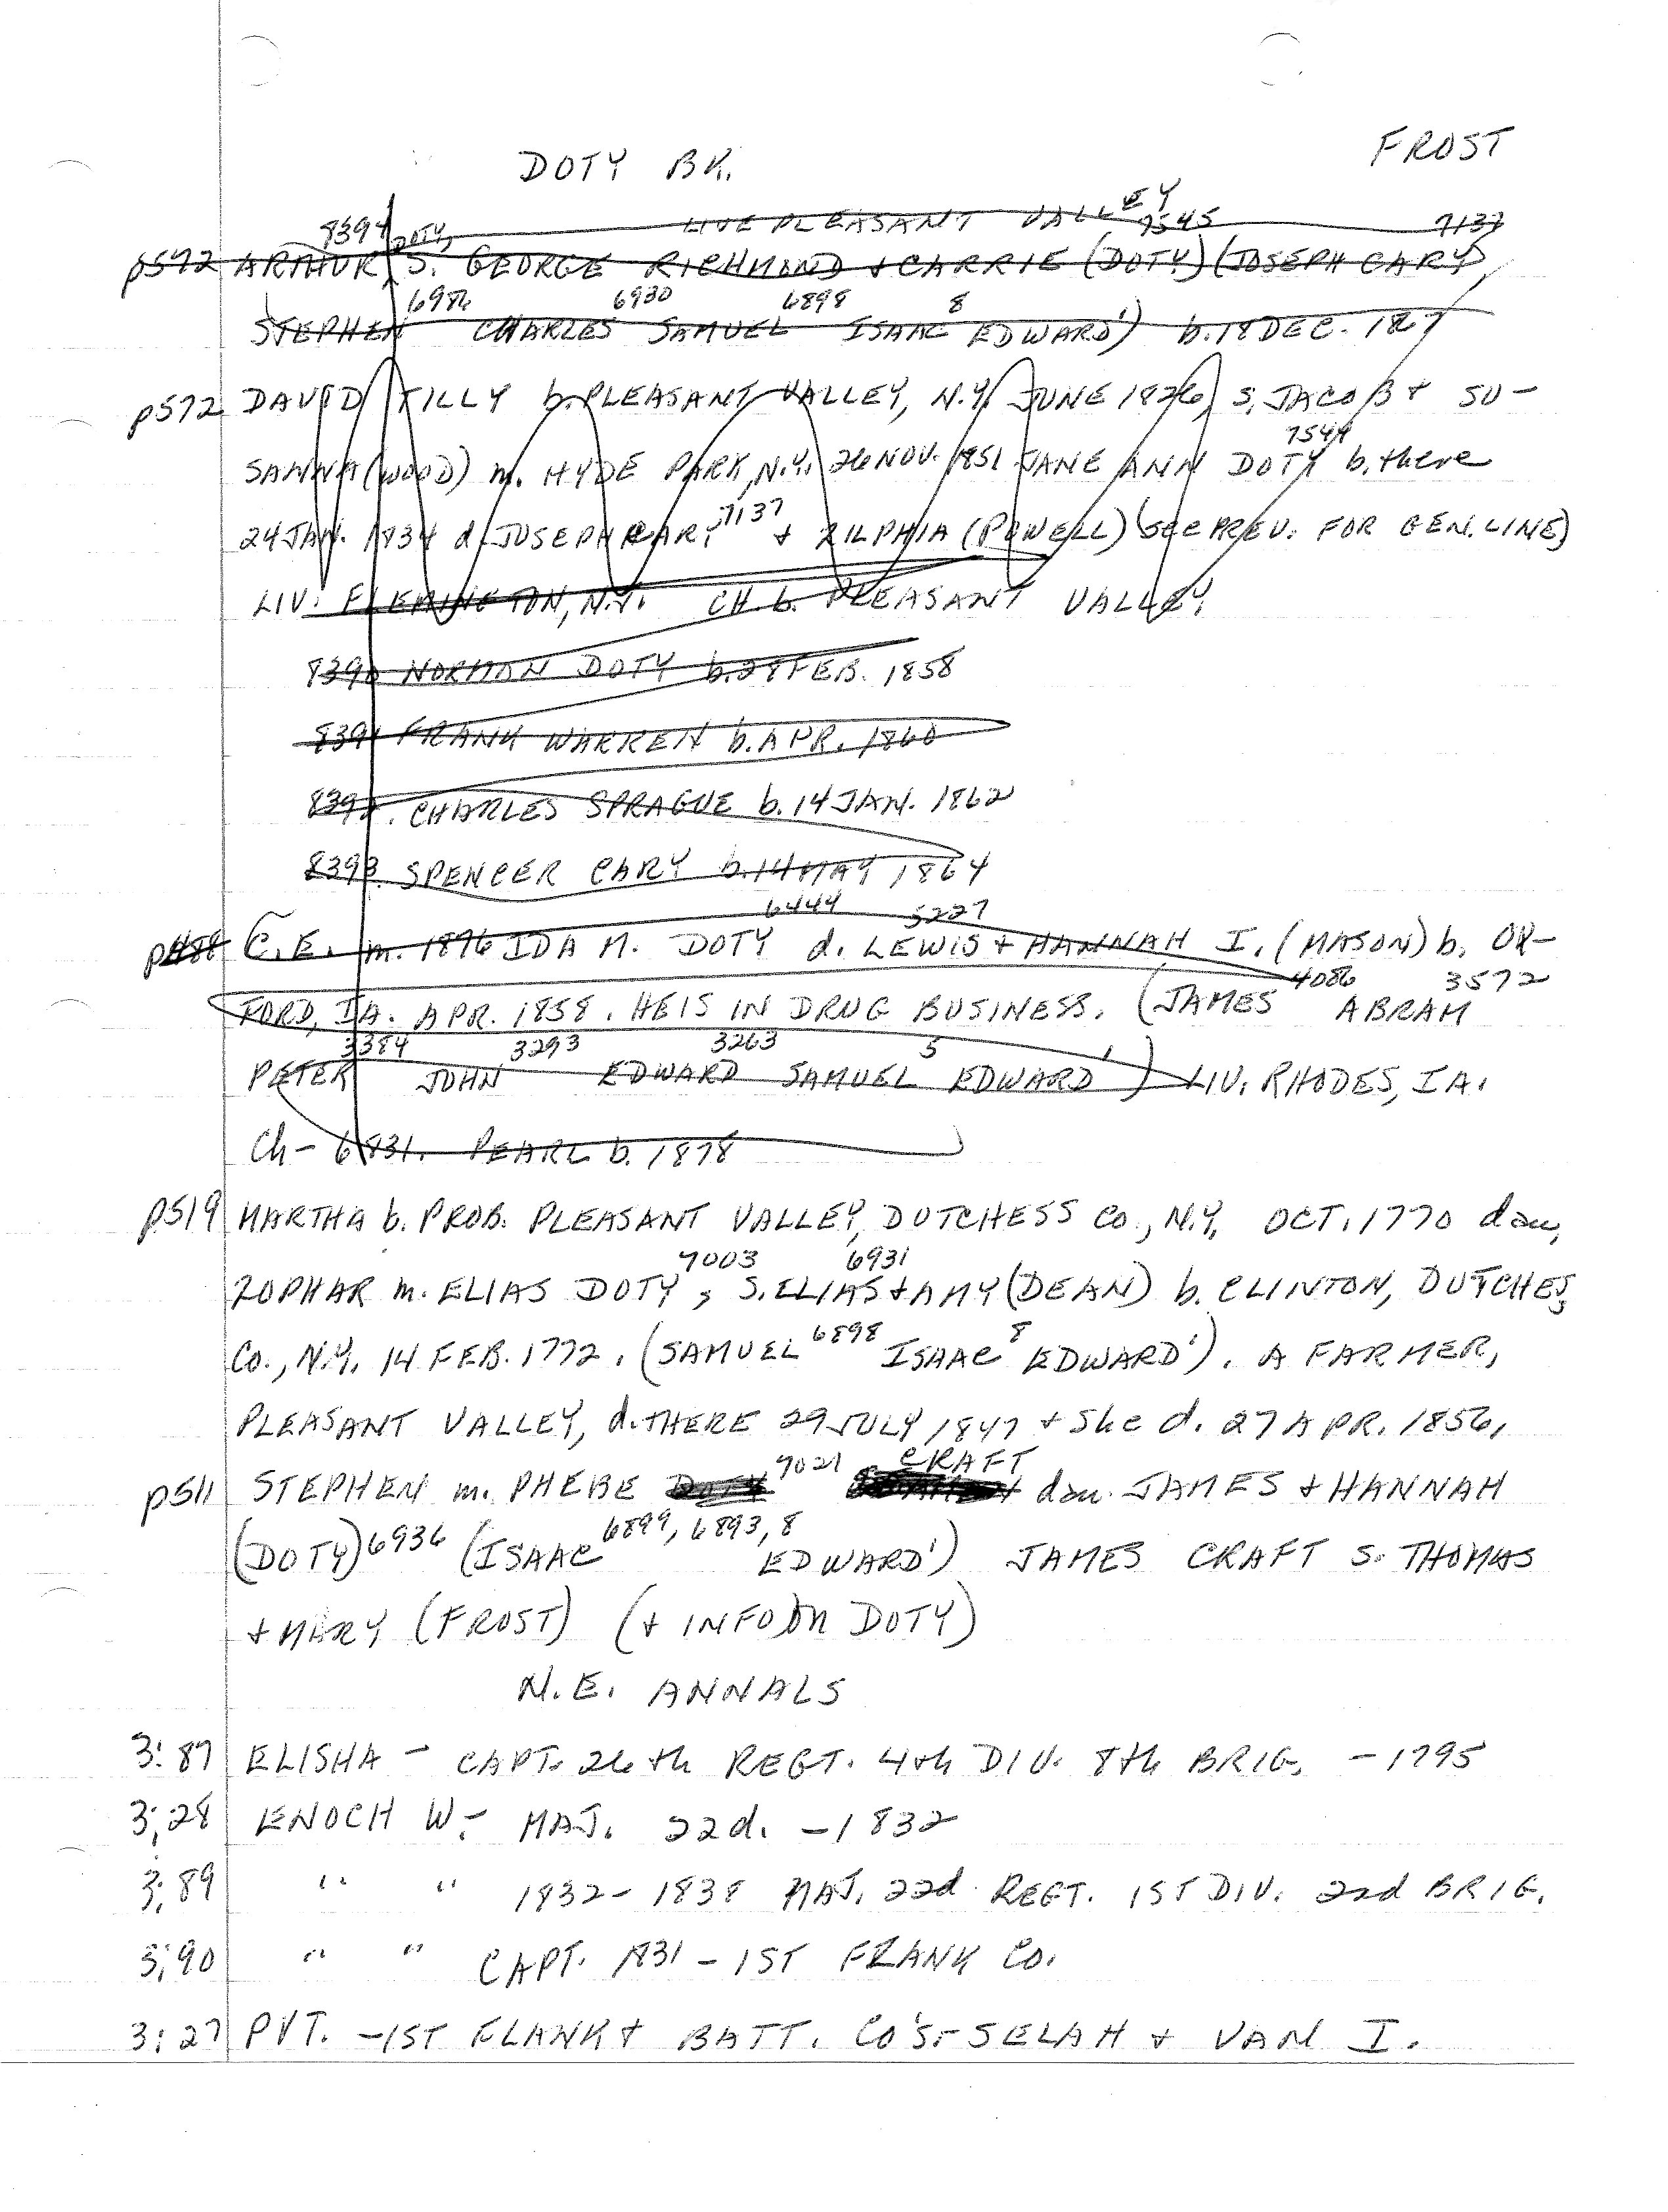 FROST
DOTY BK.
LIVE PLEASANT VALLEY
8394 DOTY, 7545 7137
p572 ARTHUR S. GEORGE RICHMOND + CARRIE (DOTY) (JOSEPH CARY
6986 6930 6898 8
STEPHEN CHARLES SAMUEL ISAAC EDWARD') b. 18 DEC. 1867
p572 DAVID TILLY b. PLEASANT VALLEY, N.Y. JUNE 1826, S. JACOB + SU-
7544
SANNA (WOOD) m. HYDE PARK, N.Y. 26 NOV. 1851 JANE ANN DOTY b. there
24 JAN. 1834 d. JOSEPH CARY 7137 + ZILPHIA (POWELL) (SEE PREV. FOR GEN. LINE)
LIV. FLEMINGTON, N.Y. CH. b. PLEASANT VALLEY.
8390 NORMAN DOTY b. 28 FEB. 1858
8391 FRANK WARREN b. APR. 1860
8392. CHARLES SPRAGUE b. 14 JAN. 1862
8393. SPENCER CARY b. 14 MAY 1864
6444 5227
p488 C.E. m. 1876 IDA M. DOTY d. LEWIS + HANNAH I. (MASON) b. OX-
4086 3572
FORD, IA. APR. 1858. HE IS IN DRUG BUSINESS. (JAMES ABRAM
3384 3293 3263 5
PETER JOHN EDWARD SAMUEL EDWARD') LIV. RHODES, IA.
Ch- 6831. PEARL b. 1878
p519 MARTHA b. PROB. PLEASANT VALLEY, DUTCHESS CO., N.Y. OCT. 1770 dau,
7003 6931
ZOPHAR m. ELIAS DOTY, S. ELIAS + AMY (DEAN) b. CLINTON, DUTCHESS
CO., N.Y. 14 FEB. 1772. (SAMUEL 6898 ISAAC 8 EDWARD'). A FARMER,
PLEASANT VALLEY, d. THERE 29 JULY 1847 + She d. 27 APR. 1856.
p511 STEPHEN m. PHEBE DOTY 7021 CRAFT dau. JAMES + HANNAH
(DOTY) 6936 (ISAAC 6899, 6893, 8 EDWARD') JAMES CRAFT S. THOMAS
+ MARY (FROST) (+ INFO on DOTY)
N.E. ANNALS
3:87 ELISHA - CAPT. 26th REGT. 4th DIV. 8th BRIG. - 1795
3:28 ENOCH W. - MAJ. 22d. - 1832
3:89 " " 1832-1838 MAJ. 22d REGT. 1ST DIV. 2nd BRIG.
3:90 " " CAPT. 1831 - 1ST FRANK CO.
3:27 PVT. - 1ST FLANK + BATT. CO'S - SELAH + VAN I.